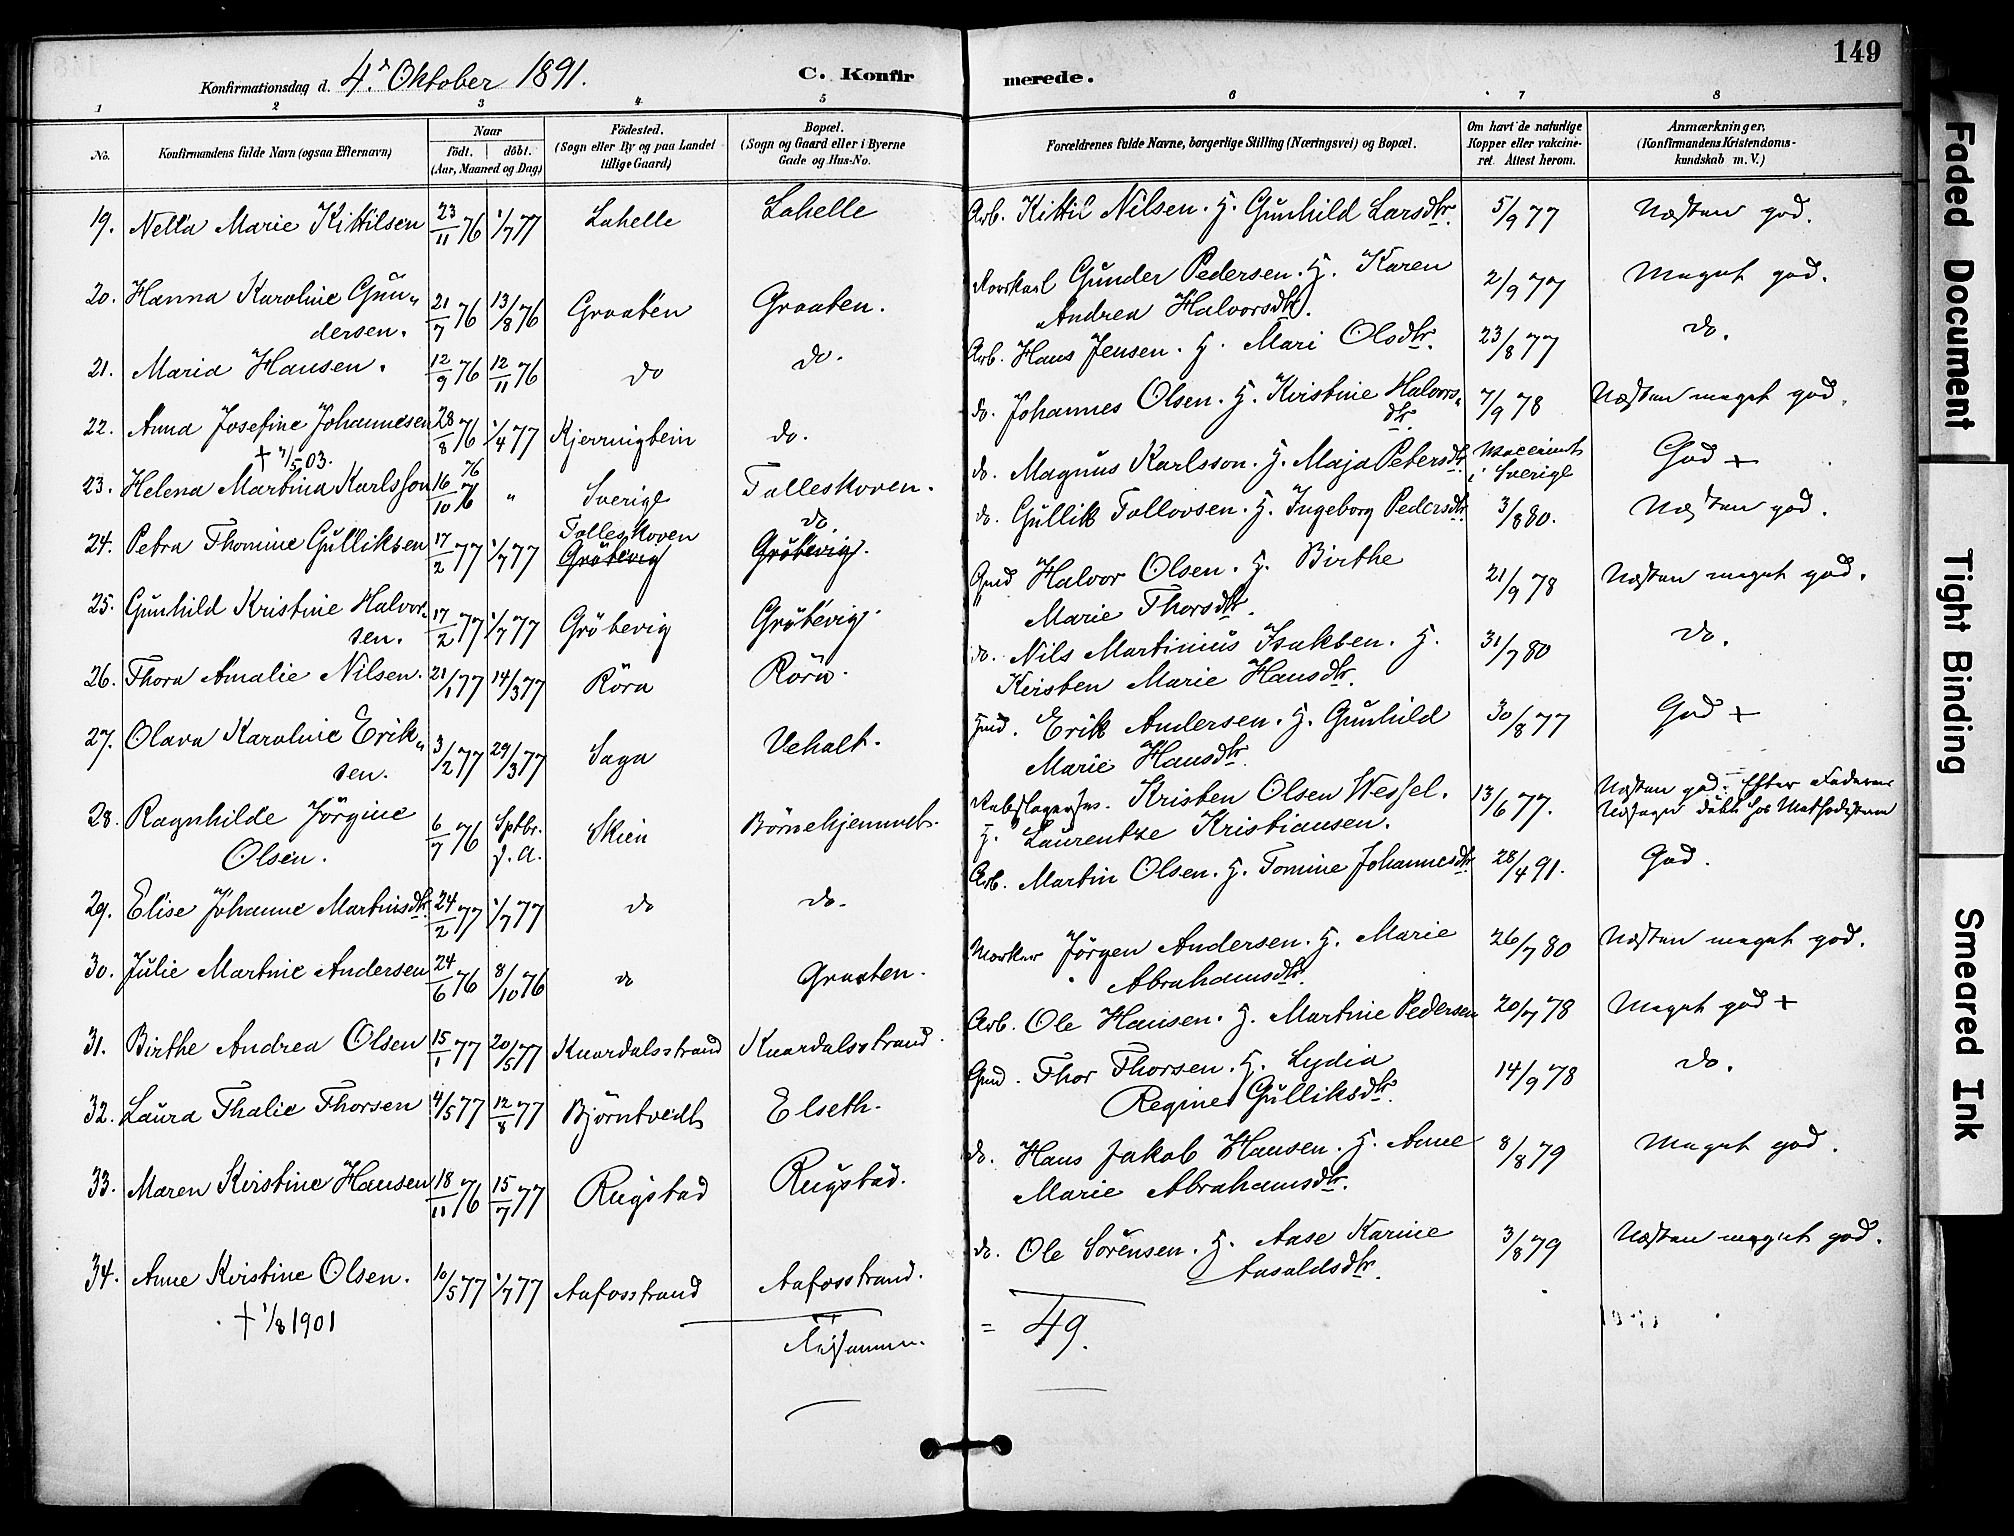 149
Konfirmationsdag d. 4de Oktober 1891. C. Konfir merede.
1 2 3 4 5 6 7 8
No. Konfirmandens fulde Navn (ogsaa Efternavn) Naar födt. döbt. (Aar, Maaned og Dag) Födested. (Sogn eller By og paa Landet tillige Gaard) Bopæl. (Sogn og Gaard eller i Byerne Gade og Hus-No. Forældrenes fulde Navne, borgerlige Stilling (Næringsvei) og Bopæl. Om havt de naturlige Kopper eller vakcineret. Attest herom. Anmærkninger. (Konfirmandens Kristendomskundskab m. V.)
19. Nella Marie Kittilsen 23/11 76 1/7 77 Lahelle Lahelle Arb. Kittil Nilsen. H. Gunhild Larsdtr. 5/9 77 Næsten god.
20. Hanna Karoline Gun„
dersen. 21/7 76 13/8 76 Graaten Graaten. Gunder Pedersen. H. Karen
Andrea Halvorsdtr. 2/9 77 Meget god.
21. Maria Hansen. 12/9 76 12/11 76 do do. Arb. Hans Jensen. H. Mari Olsdtr. 23/8 77 do.
22. Anna Josefine Johannesen 28/8 76 1/4 77 Kjerringtein do. do. Johannes Olsen. H. Kristine Halvors„
dtr. 7/9 78 Næsten meget god.
† /5 03.
23. Helena Martina Karlsson 16/10 76 76 " Sverige Tolleskoven. do. Magnus Karlsson. H. Maja Petersdtr. Vaccineret
i Sverige God +
24. Petra Thomine Gulliksen 17/2 77 1/7 77 Tolleskoven
Grötevig do.
Grötevig. do. Gullik Tollovsen. H. Ingeborg Pedersdtr. 3/8 80. Næsten god.
25. Gunhild Kristine Halvor„
sen. 17/2 77 1/7 77 Grötevig Grötevig. Gmd Halvor Olsen. H. Birthe
Marie Thorsdtr. 21/9 78 Næsten meget god.
26. Thora Amalie Nilsen. 21/1 77 14/3 77 Röra Röra. do. Nils Martinius Isaksen. H.
Kirsten Marie Hansdtr. 31/7 80 do.
27. Olava Karoline Erik„
sen. 3/2 77 29/3 77 Saga Vehalt. Gmd. Erik Andersen. H. Gunhild
Marie Hansdtr. 30/8 77 God +
28. Ragnhilde Jörgine
Olsen. 6/7 76 Sptbr.
s. A. Skien Börnehjemmet. Kristen Olsen Wessel.
H. Laurentze Kristiansen. 13/6 77. Næsten god. Efter Faderens
Udsagn döbt hos Methodisterne
29. Elise Johanne Martinsdtr. 24/2 77 1/7 77 do do. Arb. Martin Olsen. H. Tomine Johannesdtr. 28/4 91. God.
30. Julie Martine Andersen 24/6 76 8/10 76 do Graaten. Jörgen Andersen. H. Marie
Abrahamsdtr. 26/7 80 Næsten meget god.
31. Birthe Andrea Olsen 15/1 77 20/5 77 Knardalsstrand Knardalsstrand. Arb. Ole Hansen. H. Martine Pedersen 20/7 78 Meget god +
32. Laura Thalie Thorsen 4/5 77 12/8 77 Björntvedt Elseth. Gmd. Thor Thorsen. H. Lydia
Regine Gulliksdtr. 14/9 78 do.
33. Maren Kirstine Hansen 18/11 76 15/7 77 Rugstad Rugstad. do. Hans Jakob Hansen. H. Anne
Marie Abrahamsdtr. 8/8 79 Meget god.
34. Anne Kristine Olsen. 10/5 77 1/7 77 Aafosstrand Aafosstrand. do. Ole Sörensen. H. Aase Karine
Aasoldsdtr. 3/8 79 Næsten meget god.
† 1/8 1901
Tilsammen. = 49.
Faded Document
Tight Binding
Smeared Ink